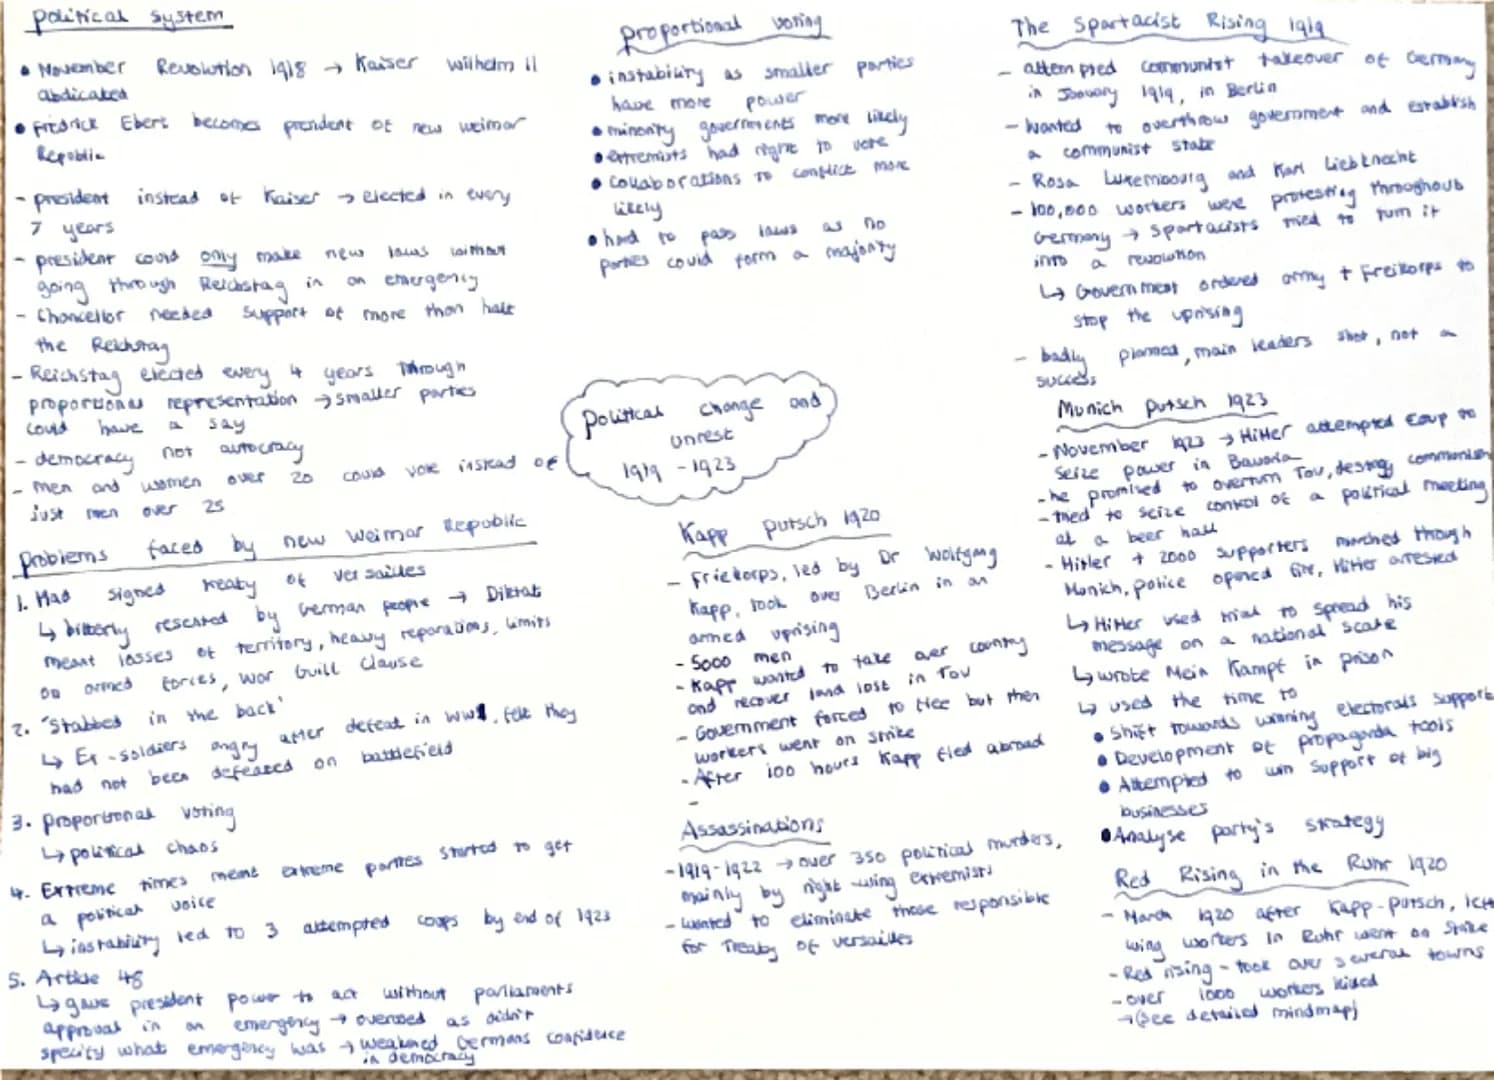 Political System
• November Revolution 1918 → Kaiser Wilhelm II
abdicated
• Fredrick Ebert becomes president of new Weimar
Republic
- president instead of Kaiser → elected in every
7 years
- president could only make new laws without
going through Reichstag in an emergency
- Chancellor needed support of more than half
the Reichstag
- Reichstag elected every 4 years through
proportional representation → smaller parties
could have a say
- democracy not autocracy
- men and women over 20 could vote instead of
just men over 25
Problems faced by new Weimar Republic
1. Had signed treaty of Versailles
↳ bitterly resented by German people → Diktat
meant losses of territory, heavy reparations, limits
on armed forces, War Guilt Clause
2. 'Stabbed in the back'
↳ Ex-soldiers angry after defeat in WW1, felt they
had not been defeated on battlefield
3. Proportional voting
↳ political chaos
4. Extreme times meant extreme parties started to get
a political voice
↳ instability led to 3 attempted coups by end of 1923
5. Article 48
↳ gave president power to act without parliaments
approval in an emergency → overused as didn't
specify what emergency was → weakened Germans confidence
in democracy
proportional voting
• instability as smaller parties
have more power
• minority governments more likely
• extremists had right to vote
• Collaborations to conflict more
likely
• hard to pass laws as no
parties could form a majority
Political change and
unrest
1919 - 1923
Kapp putsch 1920
- Friekorps, led by Dr Wolfgang
Kapp, took over Berlin in an
armed uprising
- 5000 men
- Kapp wanted to take over country
and recover land lost in TOV
- Government forced to flee but then
workers went on strike
- After 100 hours Kapp fled abroad
-
Assassinations
- 1919-1922 → over 350 political murders,
mainly by right-wing extremists
- wanted to eliminate those responsible
for Treaty of Versailles
The Spartacist Rising 1919
- attempted communist takeover of Germany
in January 1919, in Berlin
- Wanted to overthrow government and establish
a communist state
- Rosa Luxembourg and Karl Liebknecht
- 100,000 workers were protesting throughout
Germany → Spartacists tried to turn it
into a revolution
↳ Government ordered army + Freikorps to
stop the uprising
- badly planned, main leaders shot, not a
success
Munich Putsch 1923
- November 1923 → Hitler attempted coup to
seize power in Bavaria
- he promised to overturn TOV, destroy communism
- tried to seize control of a political meeting
at a beer hall
- Hitler + 2000 supporters marched though
Munich, police opened fire, Hitler arrested
↳ Hitler used trial to spread his
message on a national scale
↳ wrote Mein Kampf in prison
↳ used the time to
• Shift towards winning electorals support
• Development of propaganda tools
• Attempted to win support of big
businesses
• Analyse party's strategy
Red Rising in the Ruhr 1920
- March 1920 after Kapp-Putsch, left
wing workers in Ruhr went on strike
- Red rising - took over several towns
- over 1000 workers killed
→ (see detailed mindmap)